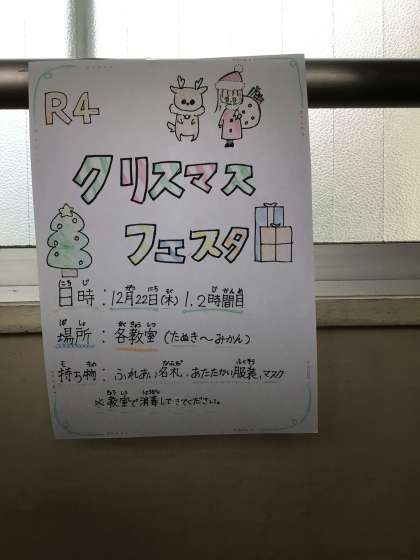 R4
クリスマス
フェスタ
日時：12月22日(木) 1.2時間目
場所：各教室(たぬき〜みかん)
持ち物：ふれあい名札、あたたかい服装、マスク
※教室で消毒してきてください。